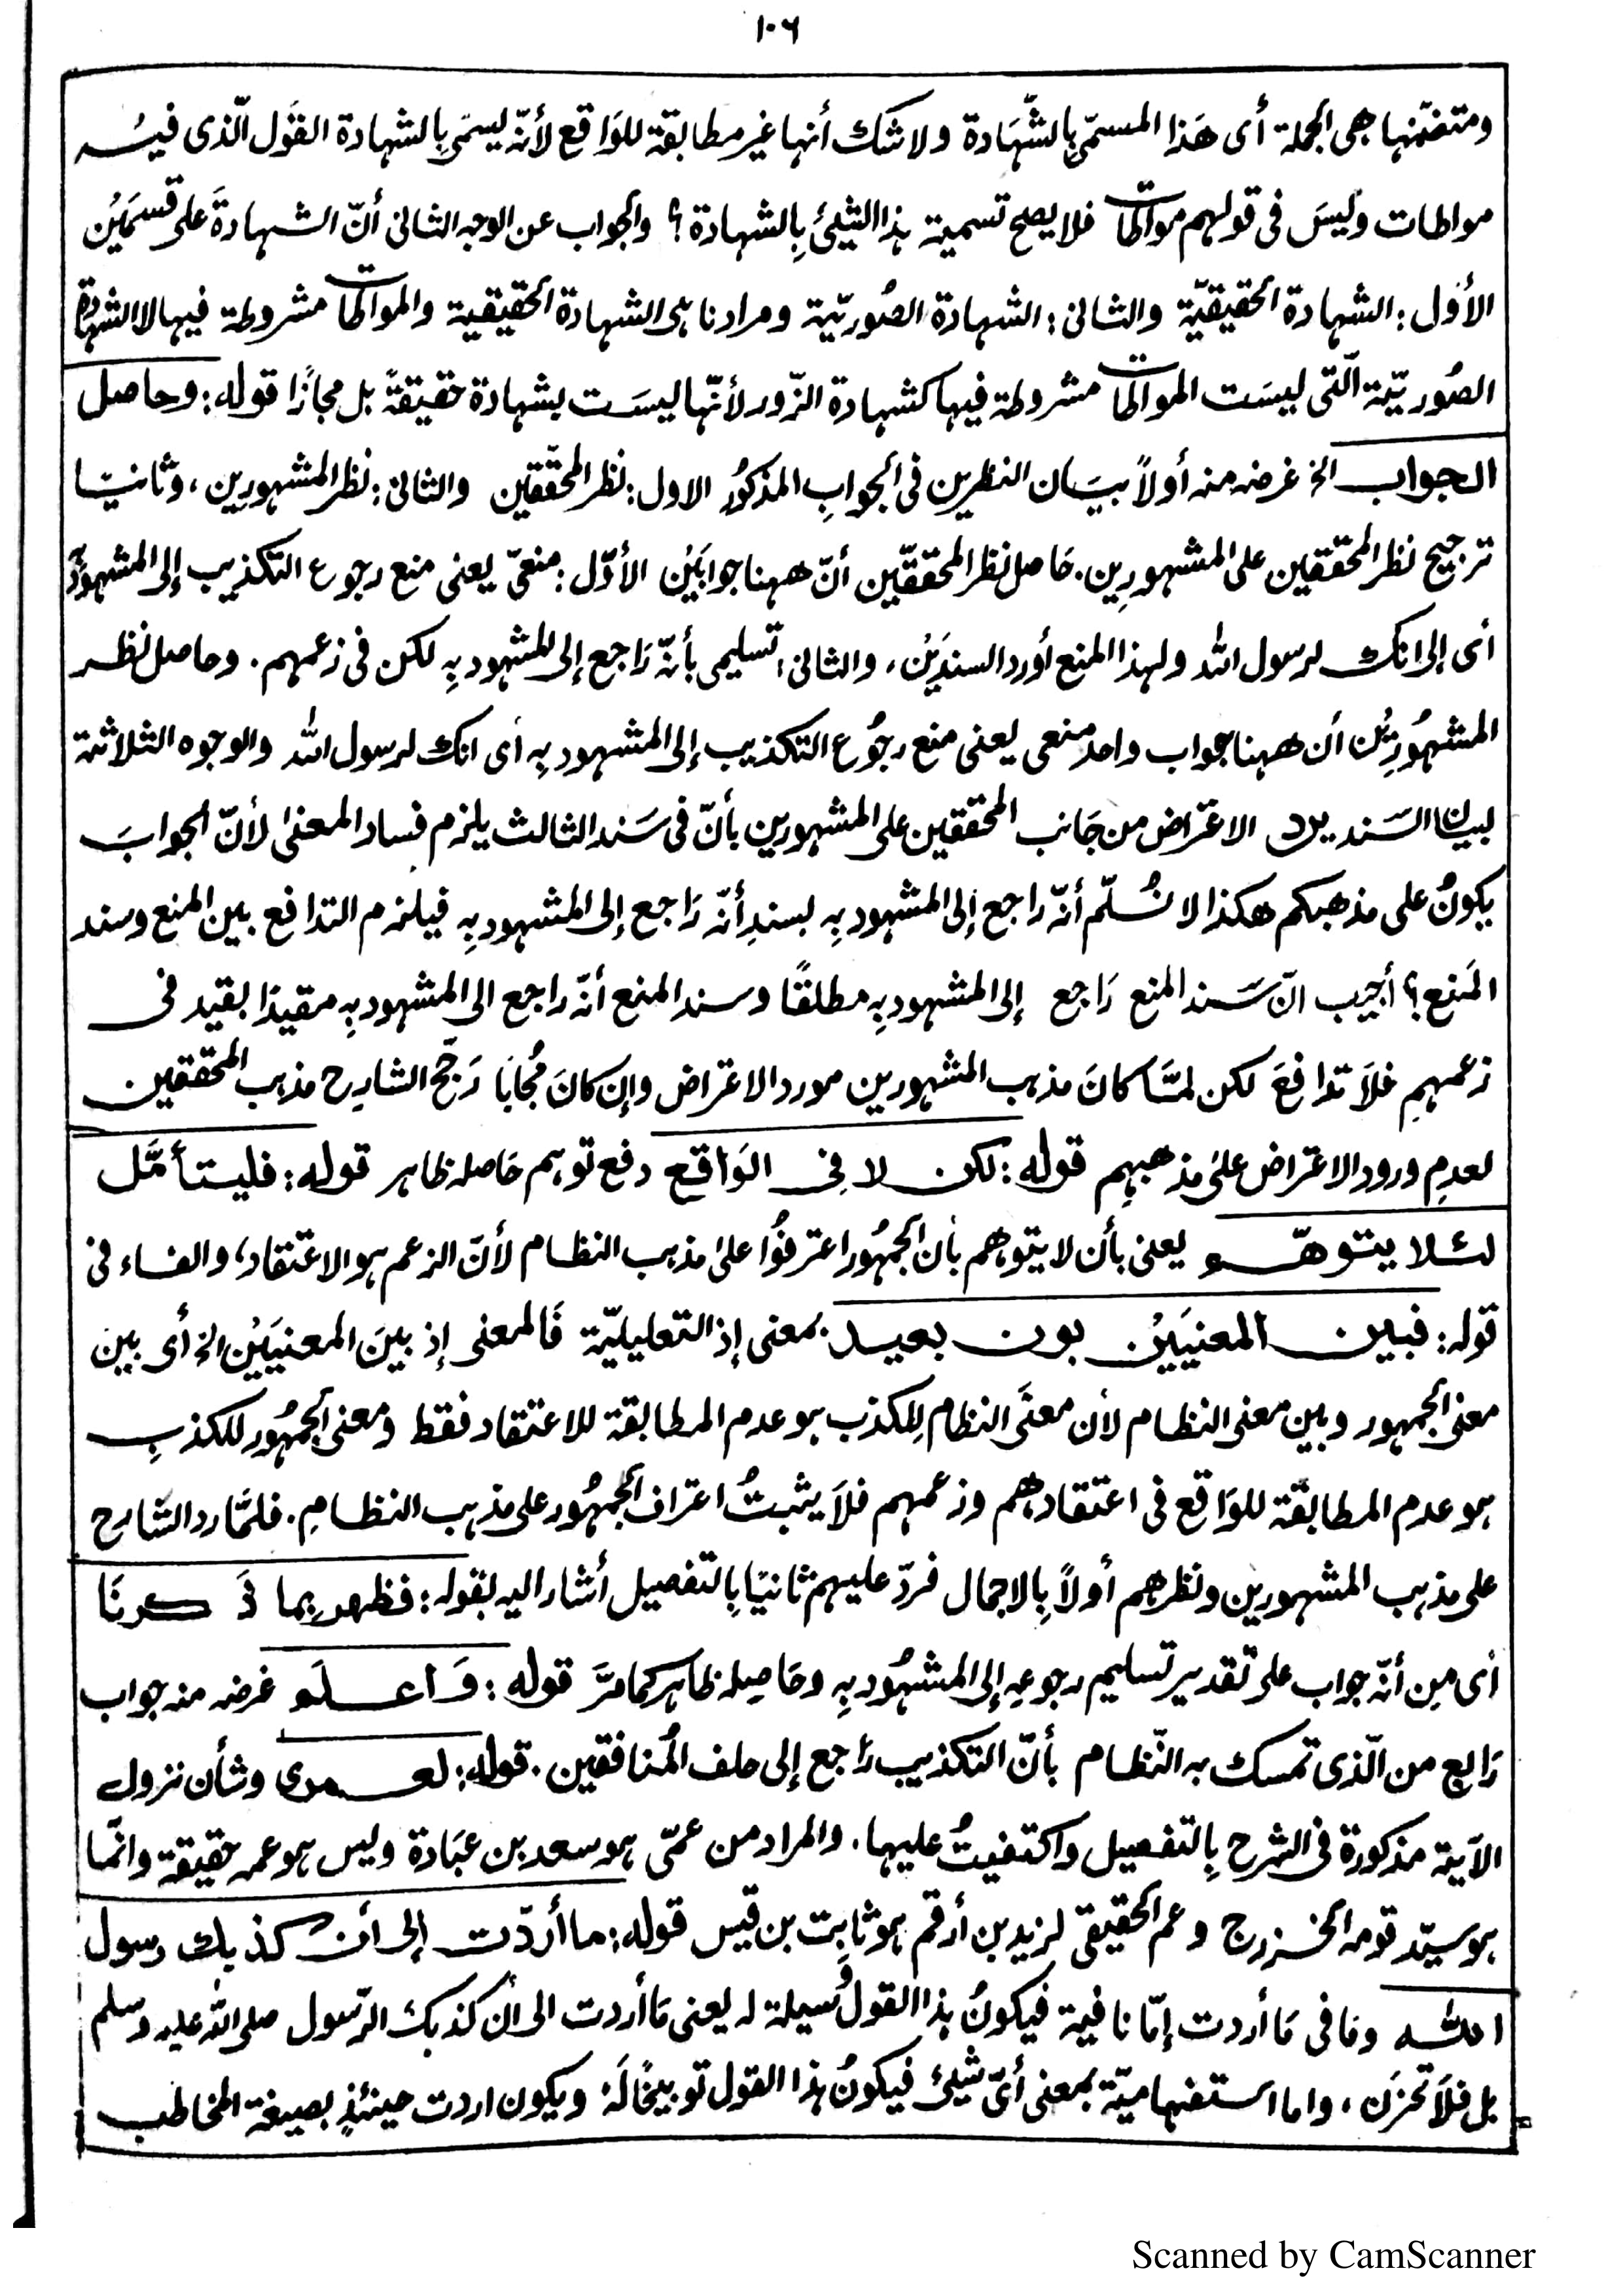 ١٠٦
ومتضمّنها هى الجملة أى هَذا المسمّى بِالشّهَادة ولا شك أنها غير مطابقة للوَاقع لأنّه ليسمّى بِالشهادة القَول الّذى فيْه
مواطات وليسَ فى قولهم مواطاة فلا يصح تسمية هذا الشيئ بِالشهادة؟ والجواب عن الوجه الثانى أنّ الشهادةَ على قسمَيْن
الأوّل: الشهادة الحقيقيّة والثانى: الشهادة الصُوريّة ومرادنا هى الشهادة الحقيقية والمواطاة مشروطة فيها لا الشهادة
الصُوريّة الّتى ليسَت المواطاة مشروطة فيها كشهادة الزّور لأنّها ليسَت بشهادة حقيقةً بل مجازًا قوله: وحاصل
الجواب الخ غرضه منه أولاً بيَان النظرين فى الجوابِ المذكوُر الاول: نظر المحقّقين والثانى: نظر المشهورين، وثانيًا
ترجيح نظر المحققين على المشهورِين. حَاصل نظر المحققّين أنّ ههنا جوابَيْن الأوّل: منعىّ يعنى منع رجوع التكذيب إلى المشهود به
أى إلى انك لرسول الله ولهذا المنع أورد السندَيْن، والثانى: تسليمى بأنّه رَاجع إلى المشهود بِه لكن فى زعمهم. وحاصل نظر
المشهُورِيْن أن ههنا جواب واحد منعى يعنى منع رجُوع التكذيب إلى المشهود بِه أى انك لرسول الله والوجوه الثلاثة
لبيان السَند يرد الاعتراض من جَانب المحققين على المشهورين بأنّ فى سَند الثالث يلزم فساد المعنىٰ لأنّ الجوابَ
يكونُ على مذهبكم هكذا لا نُسلّم أنّه راجع إلى المشهود بِه بسندِ أنّه رَاجع إلى المشهود بِه فيلزم التدافع بين المنع وسند
المَنع؟ أجيب انّ سَند المنع رَاجع إلى المشهود بِه مطلقًا وسند المنع أنّه راجع الى المشهود بِه مقيدًا بقيد فى
زعمهمِ فلاَ تدافعَ لكن لمّا كانَ مذهب المشهورين مورد الاعتراض وإن كانَ مُجابًا رَجّح الشارِح مذهب المحققين
لعدمِ ورود الاعتراض علىٰ مذهبهِم قوله: لكن لا فِى الوَاقع دفع توهم حَاصله ظاهر قوله: فليتأمّل
لئلا يتوهّم يعنى بأن لا يتوهم بأن الجمهُور اعترفُوا علىٰ مذهب النظام لأنّ الزعم هو الاعتقاد، والفاء فى
قوله: فبين المعنيَيْن بون بعيد بمعنى إذ التعليليّة فَالمعنى إذ بينَ المعنيَيْن الخ أى بين
معنى الجمهور وبين معنى النظام لأن معنَى النظام لِلكذب هو عدم المطابقة للاعتقاد فقط ومعنى الجمهُور للكذبِ
هو عدم المطابقَة للوَاقع فى اعتقادهم وزعمهم فلاَ يثبتُ اعتراف الجمهُور على مذهب النظامِ. فلمّا رد الشّارح
على مذهب المشهورين ونظرهم أولاً بِالاجمال فردّ عليهم ثانيًا بِالتفصيل أشار اليه بقوله: فظهر بِما ذَكرنَا
أى مِن أنّه جواب على تقدير تسليم رجوعِه إلى المشهُود بِه وحَاصِله ظاهر كمَا مرَّ قوله: وَاعلَم غرضه منه جواب
رَابع من الّذى تمسك به النّظام بأنّ التكذيب رَاجع إلى حلف المُنافقين. قوله: لعمرى وشأن نزول
الآية مذكورة فى الشرح بِالتفصيل واكتفيتُ عليها. والمراد من عمّى هو سعد بن عبَادة وليس هو عمه حقيقة وانّما
هو سيّد قومه الخزرج وعم الحقيقى لزيد بن أرقم هو ثابِت بن قيس قوله: ما أردّت إلى أن كذبك رسول
الله ومَا فى مَا أردت إمّا نافية فيكونُ هذا القولُ وُسيلة له يعنى مَا أردت الى أن كذبك الرّسول صلى الله عليه وسلم
بل فلاَ تحزَن، واما استفهاميّة بمعنى أىّ شيئ فيكونُ هذا القول توبيخًا لَهٗ ويكون اردت حينئذٍ بصيغة المخاطب
Scanned by CamScanner